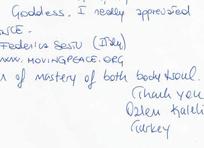 Goddess. I really appreciated
NCE.
Federica Sestu (Italy)
www.MOVINGPEACE.ORG
of mastery of both body & soul.
Thank you
Ozlen
Turkey